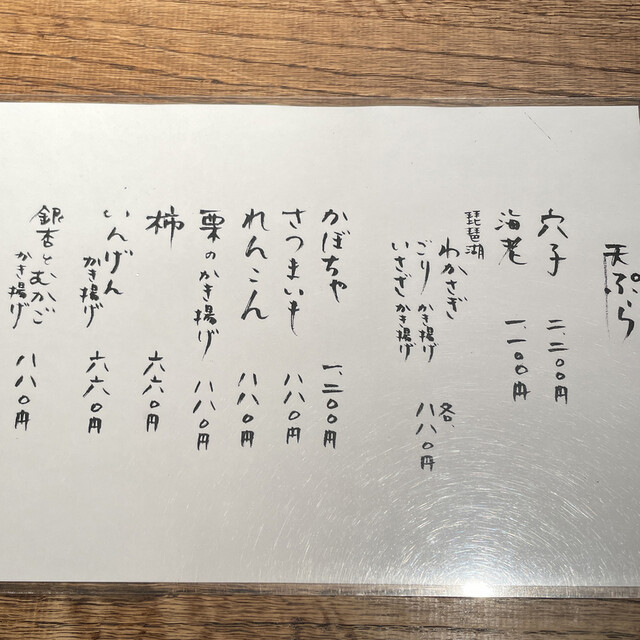 天ぷら
穴子 二、二〇〇円
海老 一、一〇〇円
琵琶湖 わかさぎ
ごり かき揚げ
いさざ かき揚げ
各、八八〇円
かぼちゃ 一、二〇〇円
さつまいも 八八〇円
れんこん 八八〇円
栗のかき揚げ 八八〇円
柿 六六〇円
いんげん かき揚げ 六六〇円
銀杏とむかご かき揚げ 八八〇円